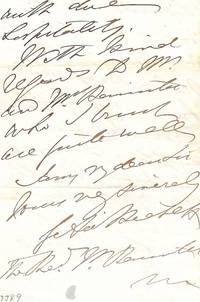 with due
hospitality
With kind
regards to Mr
and Mrs
who I trust
are quite well
I am my dear Sir
yours very sincerely

The Revd
7789